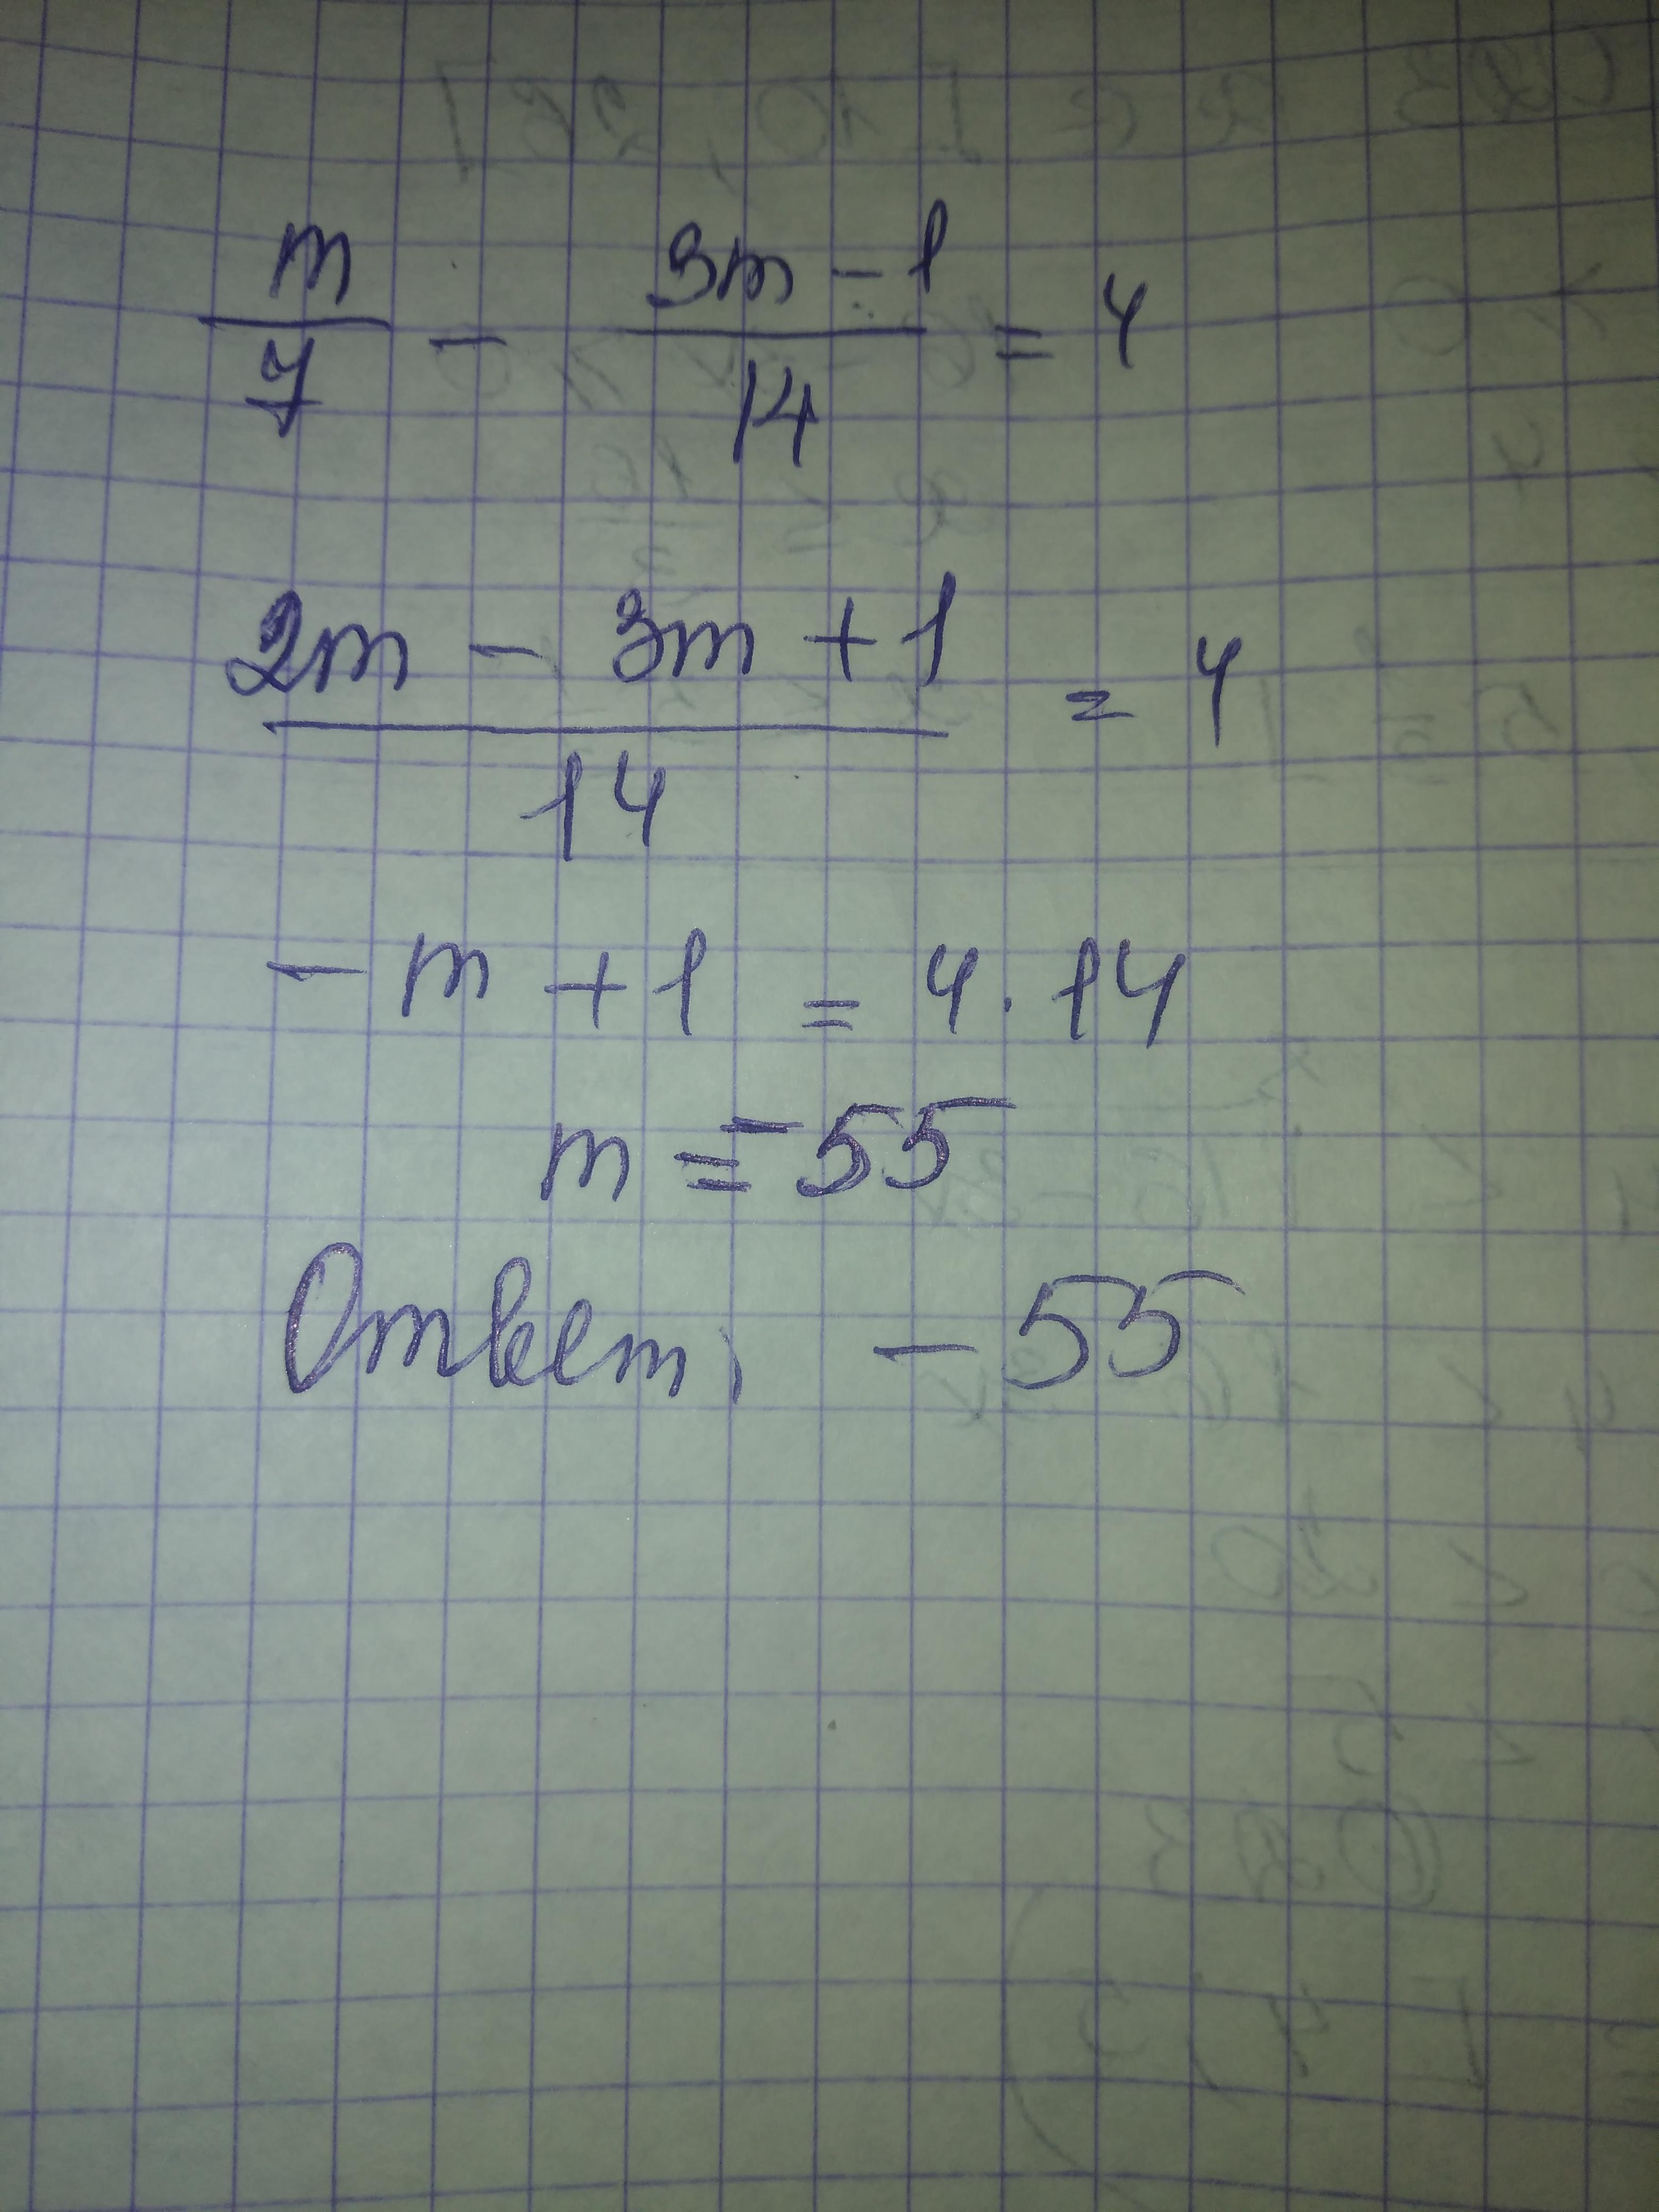 m/7 - (3m - 1)/14 = 4
(2m - 3m + 1)/14 = 4
- m + 1 = 4 · 14
m = -55
Ответ: - 55